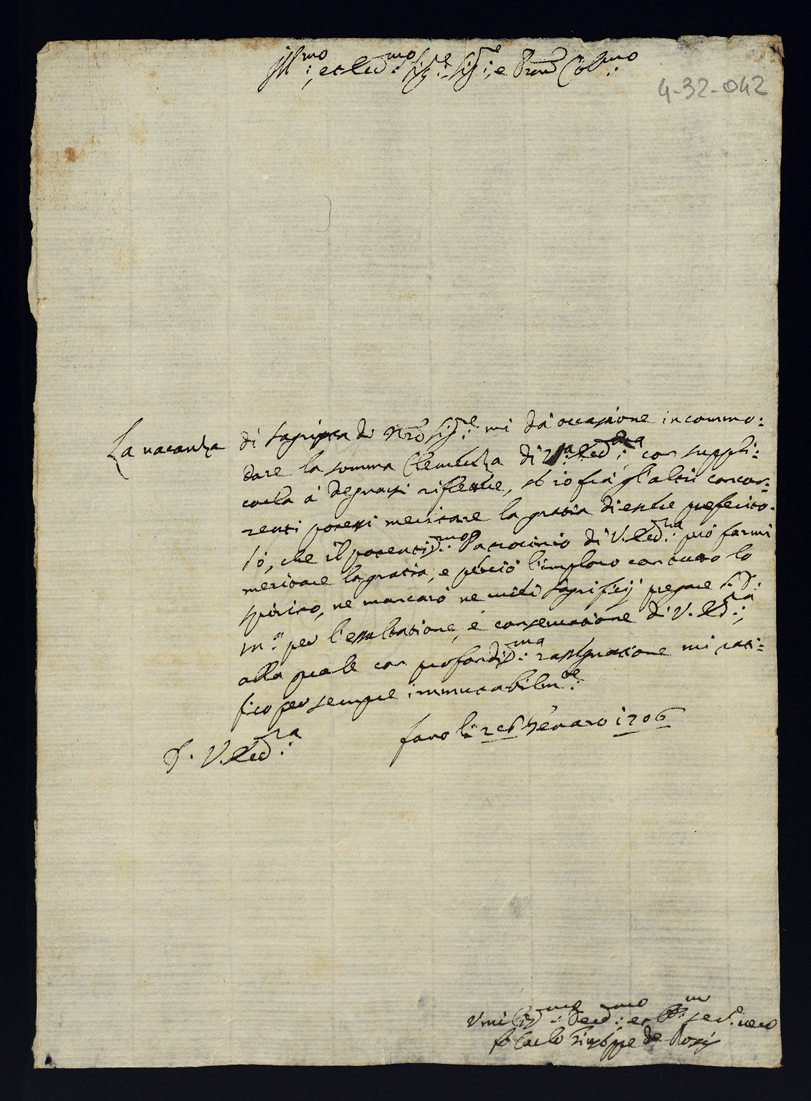 Ill.mo, et Red.mo Sig.re Sig.re, e Pron Col.mo
4-32-042
La vacanza di Sagrista di Nro Sig.re mi dà occasione incommo:
dare la somma Clemenza di V.ra Red.ma con suppli:
carla à degnarsi riflettere, se io frà gl'altri concor:
renti potessi meritare la gratia di esser preferito.
Sò, che il potentis.mo Patrocinio di V. Red.ma può farmi
meritare la gratia, e perciò l'imploro con tutto lo
spirito, ne mancarò ne miei Sagrificij pregare S. D.
M.a per l'essaltatione, e conservatione di V. Red.ma,
alla quale con profondis.ma rassegnatione mi rati:
fico per sempre immutabilm.te
D. V. Red.ma
fano li 26 Genaro 1706
Umiliss.mo Deu.mo et Obl.mo Ser.e vero
f. Carlo Giuseppe de Rossi